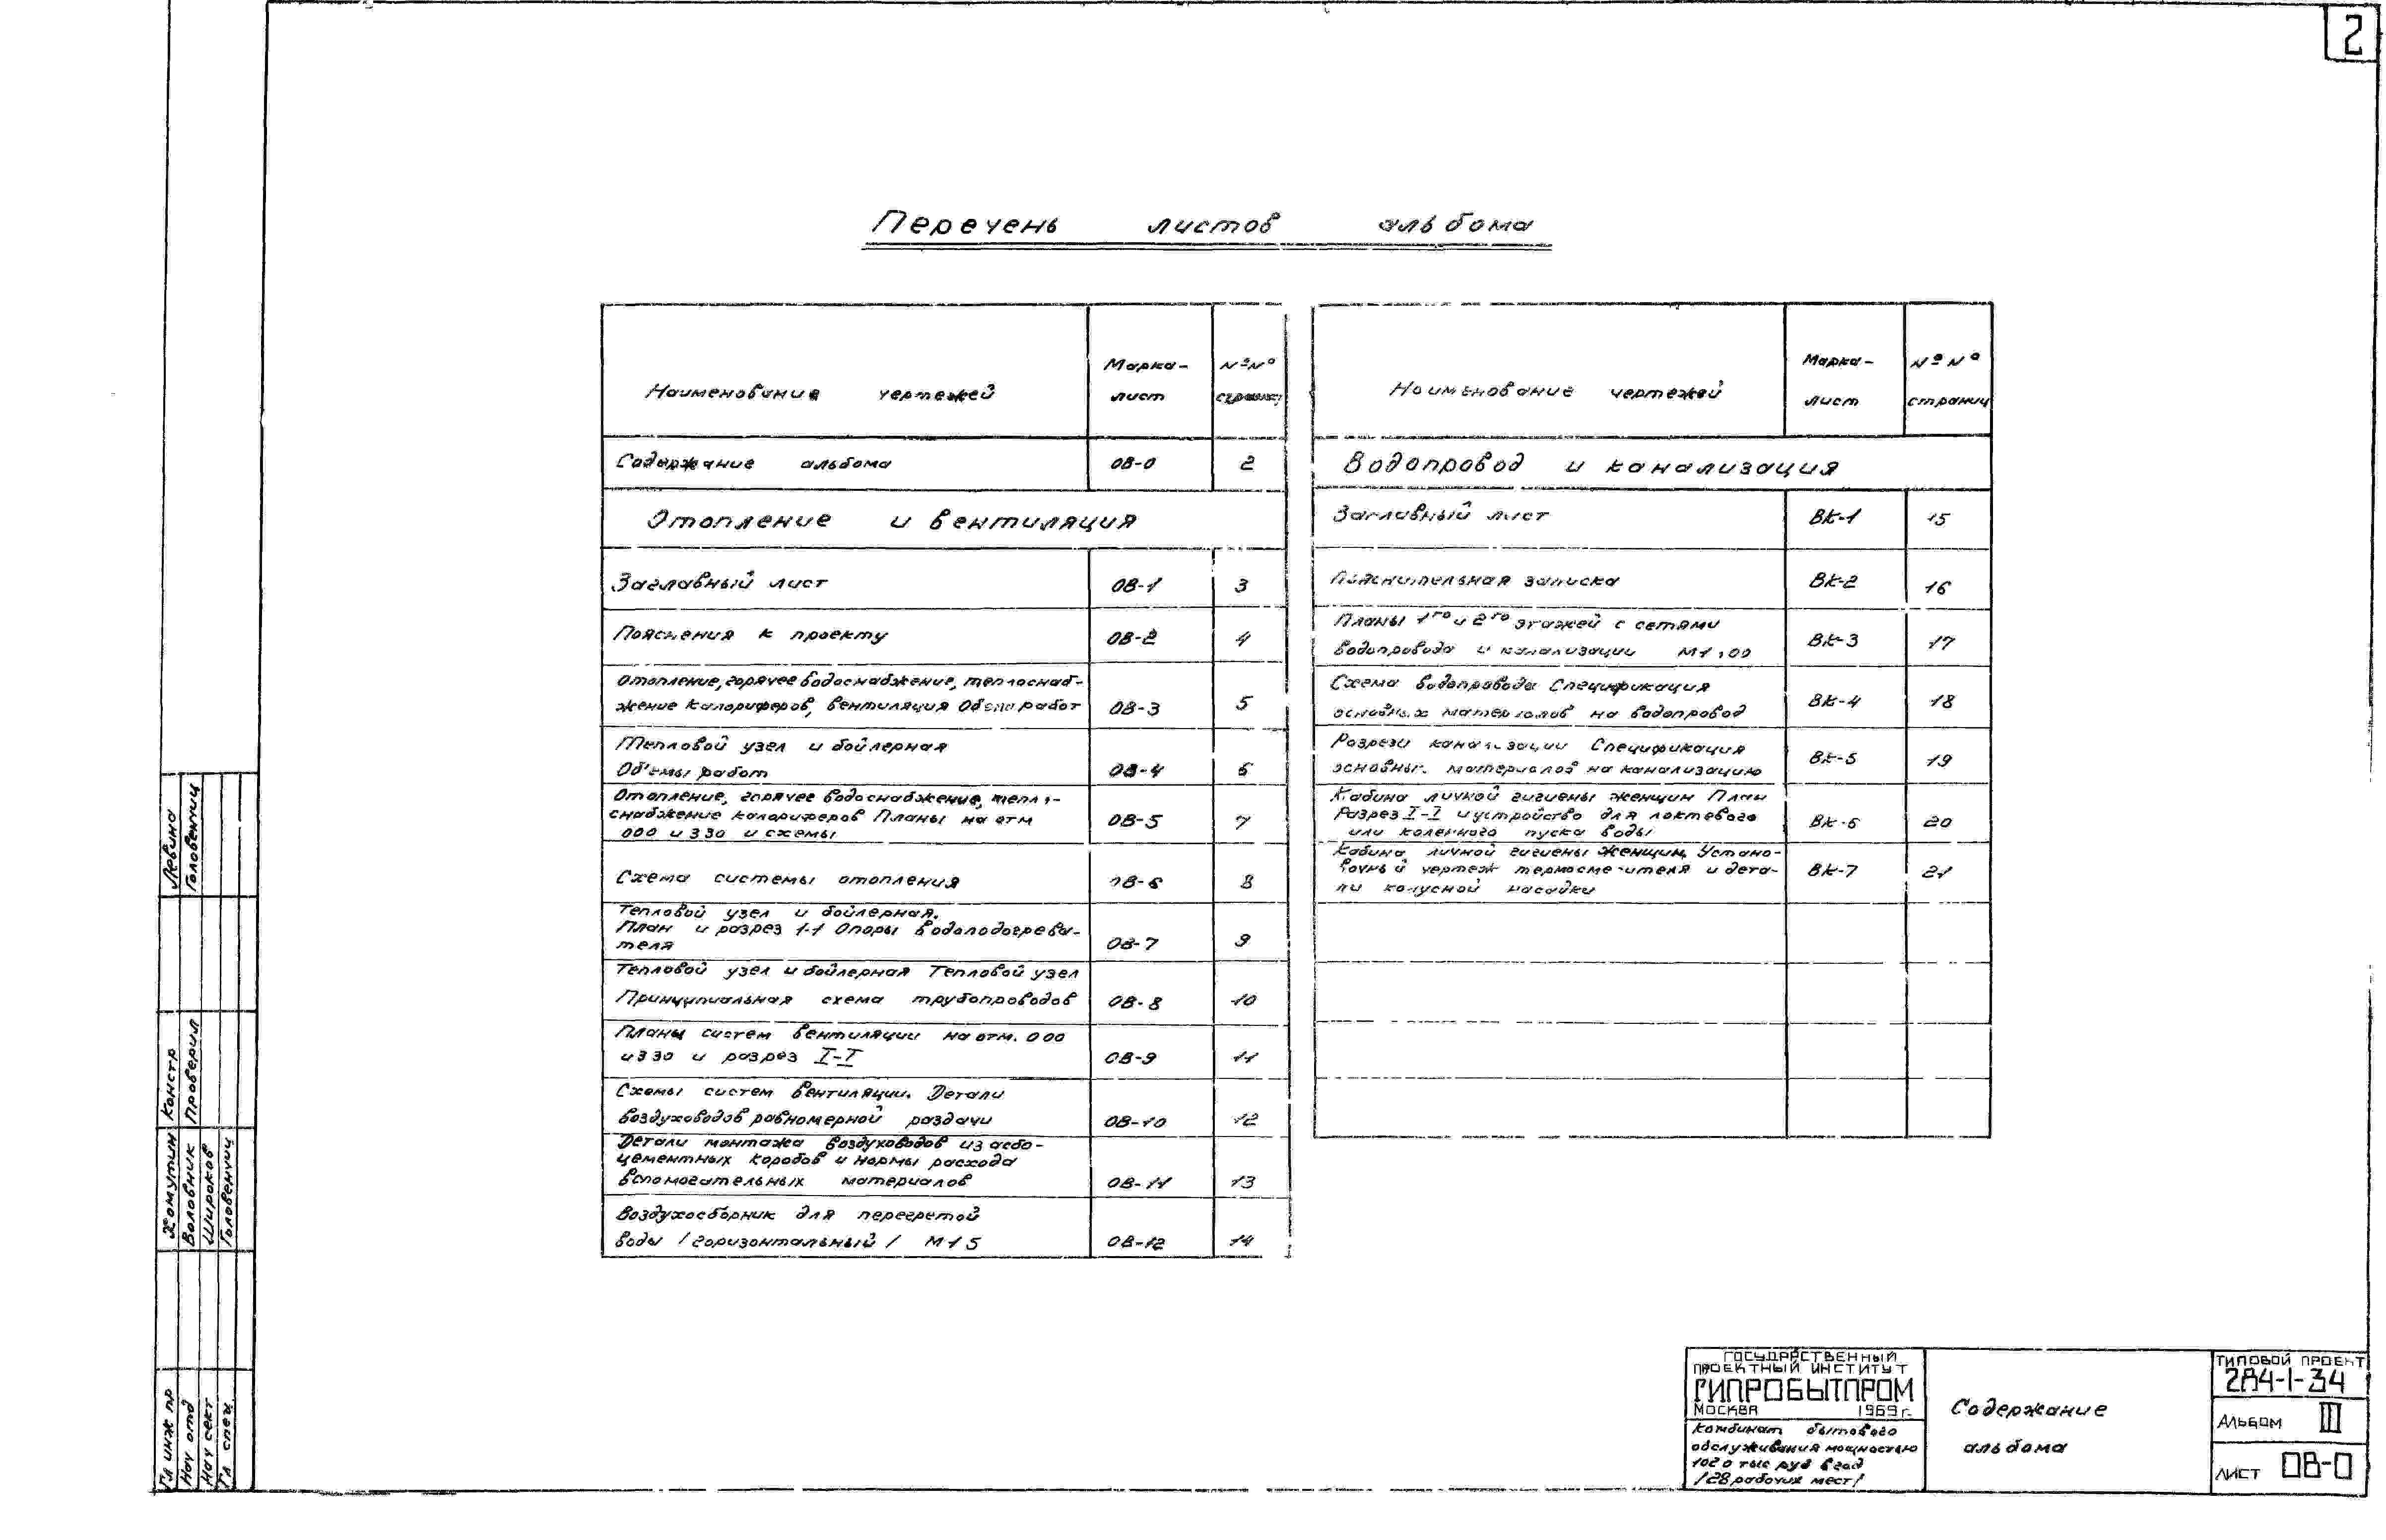 2
Перечень листов альбома
Наименование чертежей
Марка-
лист
№№
страниц
Содержание альбома ОВ-0 2
Отопление и вентиляция
Заглавный лист ОВ-1 3
Пояснения к проекту ОВ-2 4
Отопление, горячее водоснабжение, теплоснаб-
жение калориферов, вентиляция
работ ОВ-3 5
Тепловой узел и бойлерная
Об'емы работ ОВ-4 6
Отопление, горячее водоснабжение, тепло-
снабжение калориферов Планы на отм
000 и 330 и схемы ОВ-5 7
Схема системы отопления ОВ-6 8
Тепловой узел и бойлерная.
План и разрез 1-1 Опоры водоподогрева-
теля ОВ-7 9
Тепловой узел и бойлерная Тепловой узел
Принципиальная схема трубопроводов ОВ-8 10
Планы систем вентиляции на отм. 000
и 330 и разрез I-I ОВ-9 11
Схемы систем вентиляции. Детали
воздуховодов равномерной раздачи ОВ-10 12
Детали монтажа воздуховодов из асбо-
цементных коробов и нормы расхода
вспомогательных материалов ОВ-11 13
Воздухосборник для перегретой
воды /горизонтальный/ М 1 5 ОВ-12 14
Наименование чертежей
Марка-
лист
№№
страниц
Водопровод и канализация
Заглавный лист ВК-1 15
Пояснительная записка ВК-2 16
Планы 1го и 2го этажей с сетями
водопровода и канализации М 1:100 ВК-3 17
Схема водопровода Спецификация
основных материалов на водопровод ВК-4 18
Разрезы канализации Спецификация
основных материалов на канализацию ВК-5 19
Кабина личной гигиены женщин План
Разрез I-I и устройство для локтевого
или коленного пуска воды ВК-6 20
Кабина личной гигиены женщин, Устано-
вочный чертеж термосмесителя и дета-
ли конусной насадки ВК-7 21
Левина
Головенчиц
Констр
Проверил
Хомутин
Воловник
Широков
Головенчиц
Гл инж пр
Нач отд
Нач сект
Гл спец
ГОСУДАРСТВЕННЫЙ
ПРОЕКТНЫЙ ИНСТИТУТ
ГИПРОБЫТПРОМ
МОСКВА 1969 г.
Комбинат бытового
обслуживания мощностью
102 0 тыс руб в год
/28 рабочих мест/
Содержание
альбома
ТИПОВОЙ ПРОЕКТ
284-1-34
АЛЬБОМ III
ЛИСТ ОВ-0